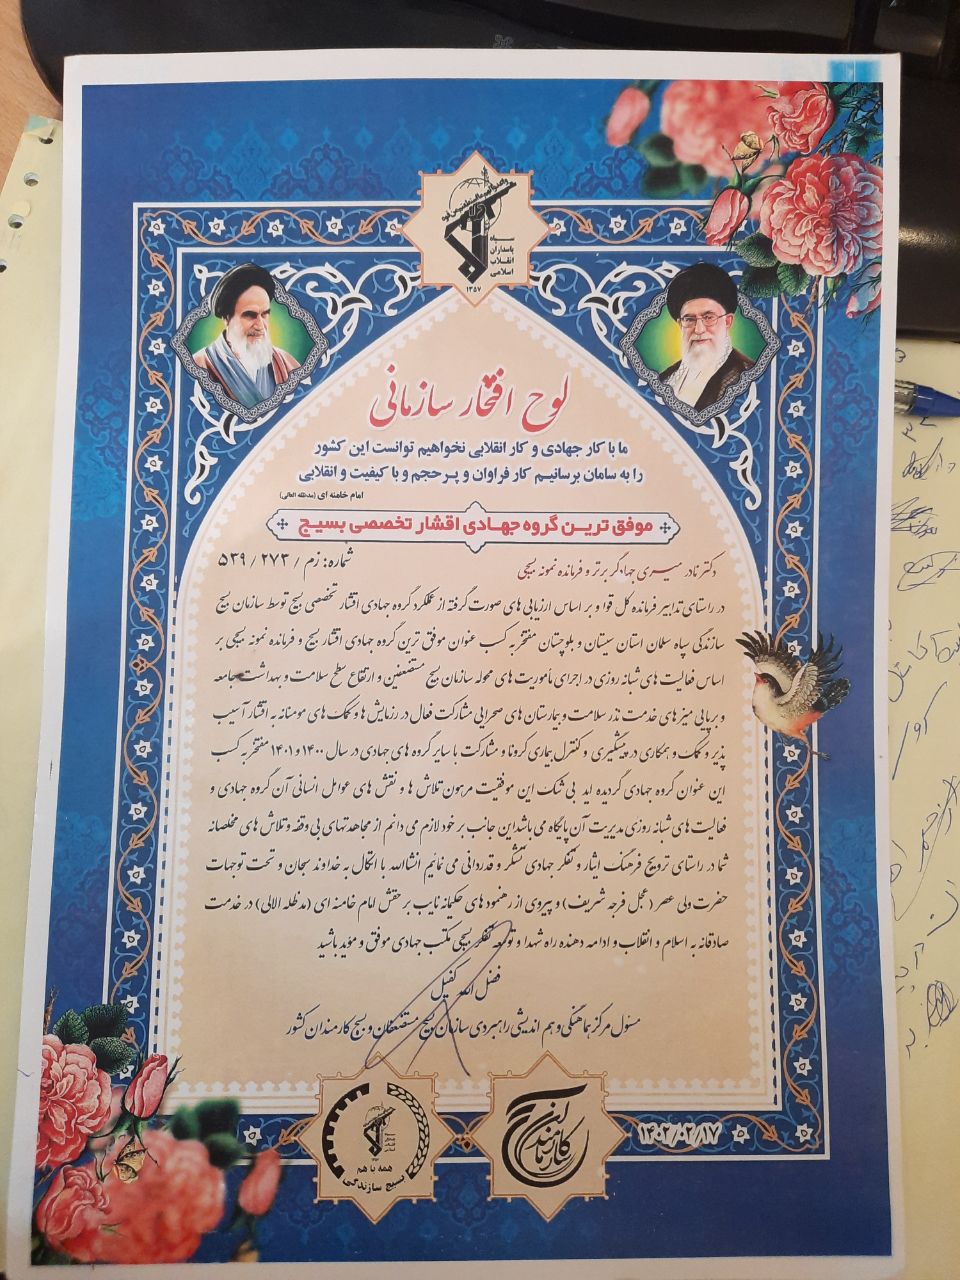 سپاه
پاسداران
انقلاب
اسلامی
۱۳۵۷
لوح افتخار سازمانی
ما با کار جهادی و کار انقلابی نخواهیم توانست این کشور
را به سامان برسانیم کار فراوان و پرحجم و با کیفیت و انقلابی
امام خامنه ای (مدظله العالی)
موفق ترین گروه جهادی اقشار تخصصی بسیج
شماره: زم / ۲۷۳ / ۵۳۹
دکتر نادر میری جهادگر برتر و فرمانده نمونه بسیجی
در راستای تدابیر فرمانده کل قوا و بر اساس ارزیابی های صورت گرفته از عملکرد گروه جهادی اقشار تخصصی بسیج توسط سازمان بسیج
سازندگی سپاه سلمان استان سیستان و بلوچستان مفتخر به کسب عنوان موفق ترین گروه جهادی اقشار بسیج و فرمانده نمونه بسیجی بر
اساس فعالیت های شبانه روزی در اجرای مأموریت های محوله سازمان بسیج مستضعفین و ارتقاع سطح سلامت و بهداشت جامعه
و برپایی میز های خدمت نذر سلامت و بیمارستان های صحرایی مشارکت فعال در رزمایش ها و کمک های مومنانه به اقشار آسیب
پذیر و کمک و همکاری در پیشگیری و کنترل بیماری کرونا و مشارکت با سایر گروه های جهادی در سال ۱۴۰۰ و ۱۴۰۱ مفتخر به کسب
این عنوان گروه جهادی گردیده اید بی شک این موفقیت مرهون تلاش ها و نقش های عوامل انسانی آن گروه جهادی و
فعالیت های شبانه روزی مدیریت آن پایگاه می باشد این جانب بر خود لازم می دانم از مجاهدتهای بی وقفه و تلاش های مخلصانه
شما در راستای ترویج فرهنگ ایثار و تفکر جهادی تشکر و قدردانی می نمائیم انشاالله با اتکال به خداوند سبحان و تحت توجهات
حضرت ولی عصر (عجل فرجه شریف) و پیروی از رهنمود های حکیمانه نایب بر حقش امام خامنه ای (مدظله الالی) در خدمت
صادقانه به اسلام و انقلاب و ادامه دهنده راه شهدا و توسعه تفکر بسیجی مکتب جهادی موفق و مؤید باشید
فضل الله کفیل
مسئول مرکز هماهنگی و هم اندیشی راهبردی سازمان بسیج مستضعفان و بسیج کارمندان کشور
همه با هم
بسیج سازندگی
بسیج کارمندان
۱۴۰۲/۰۲/۱۷